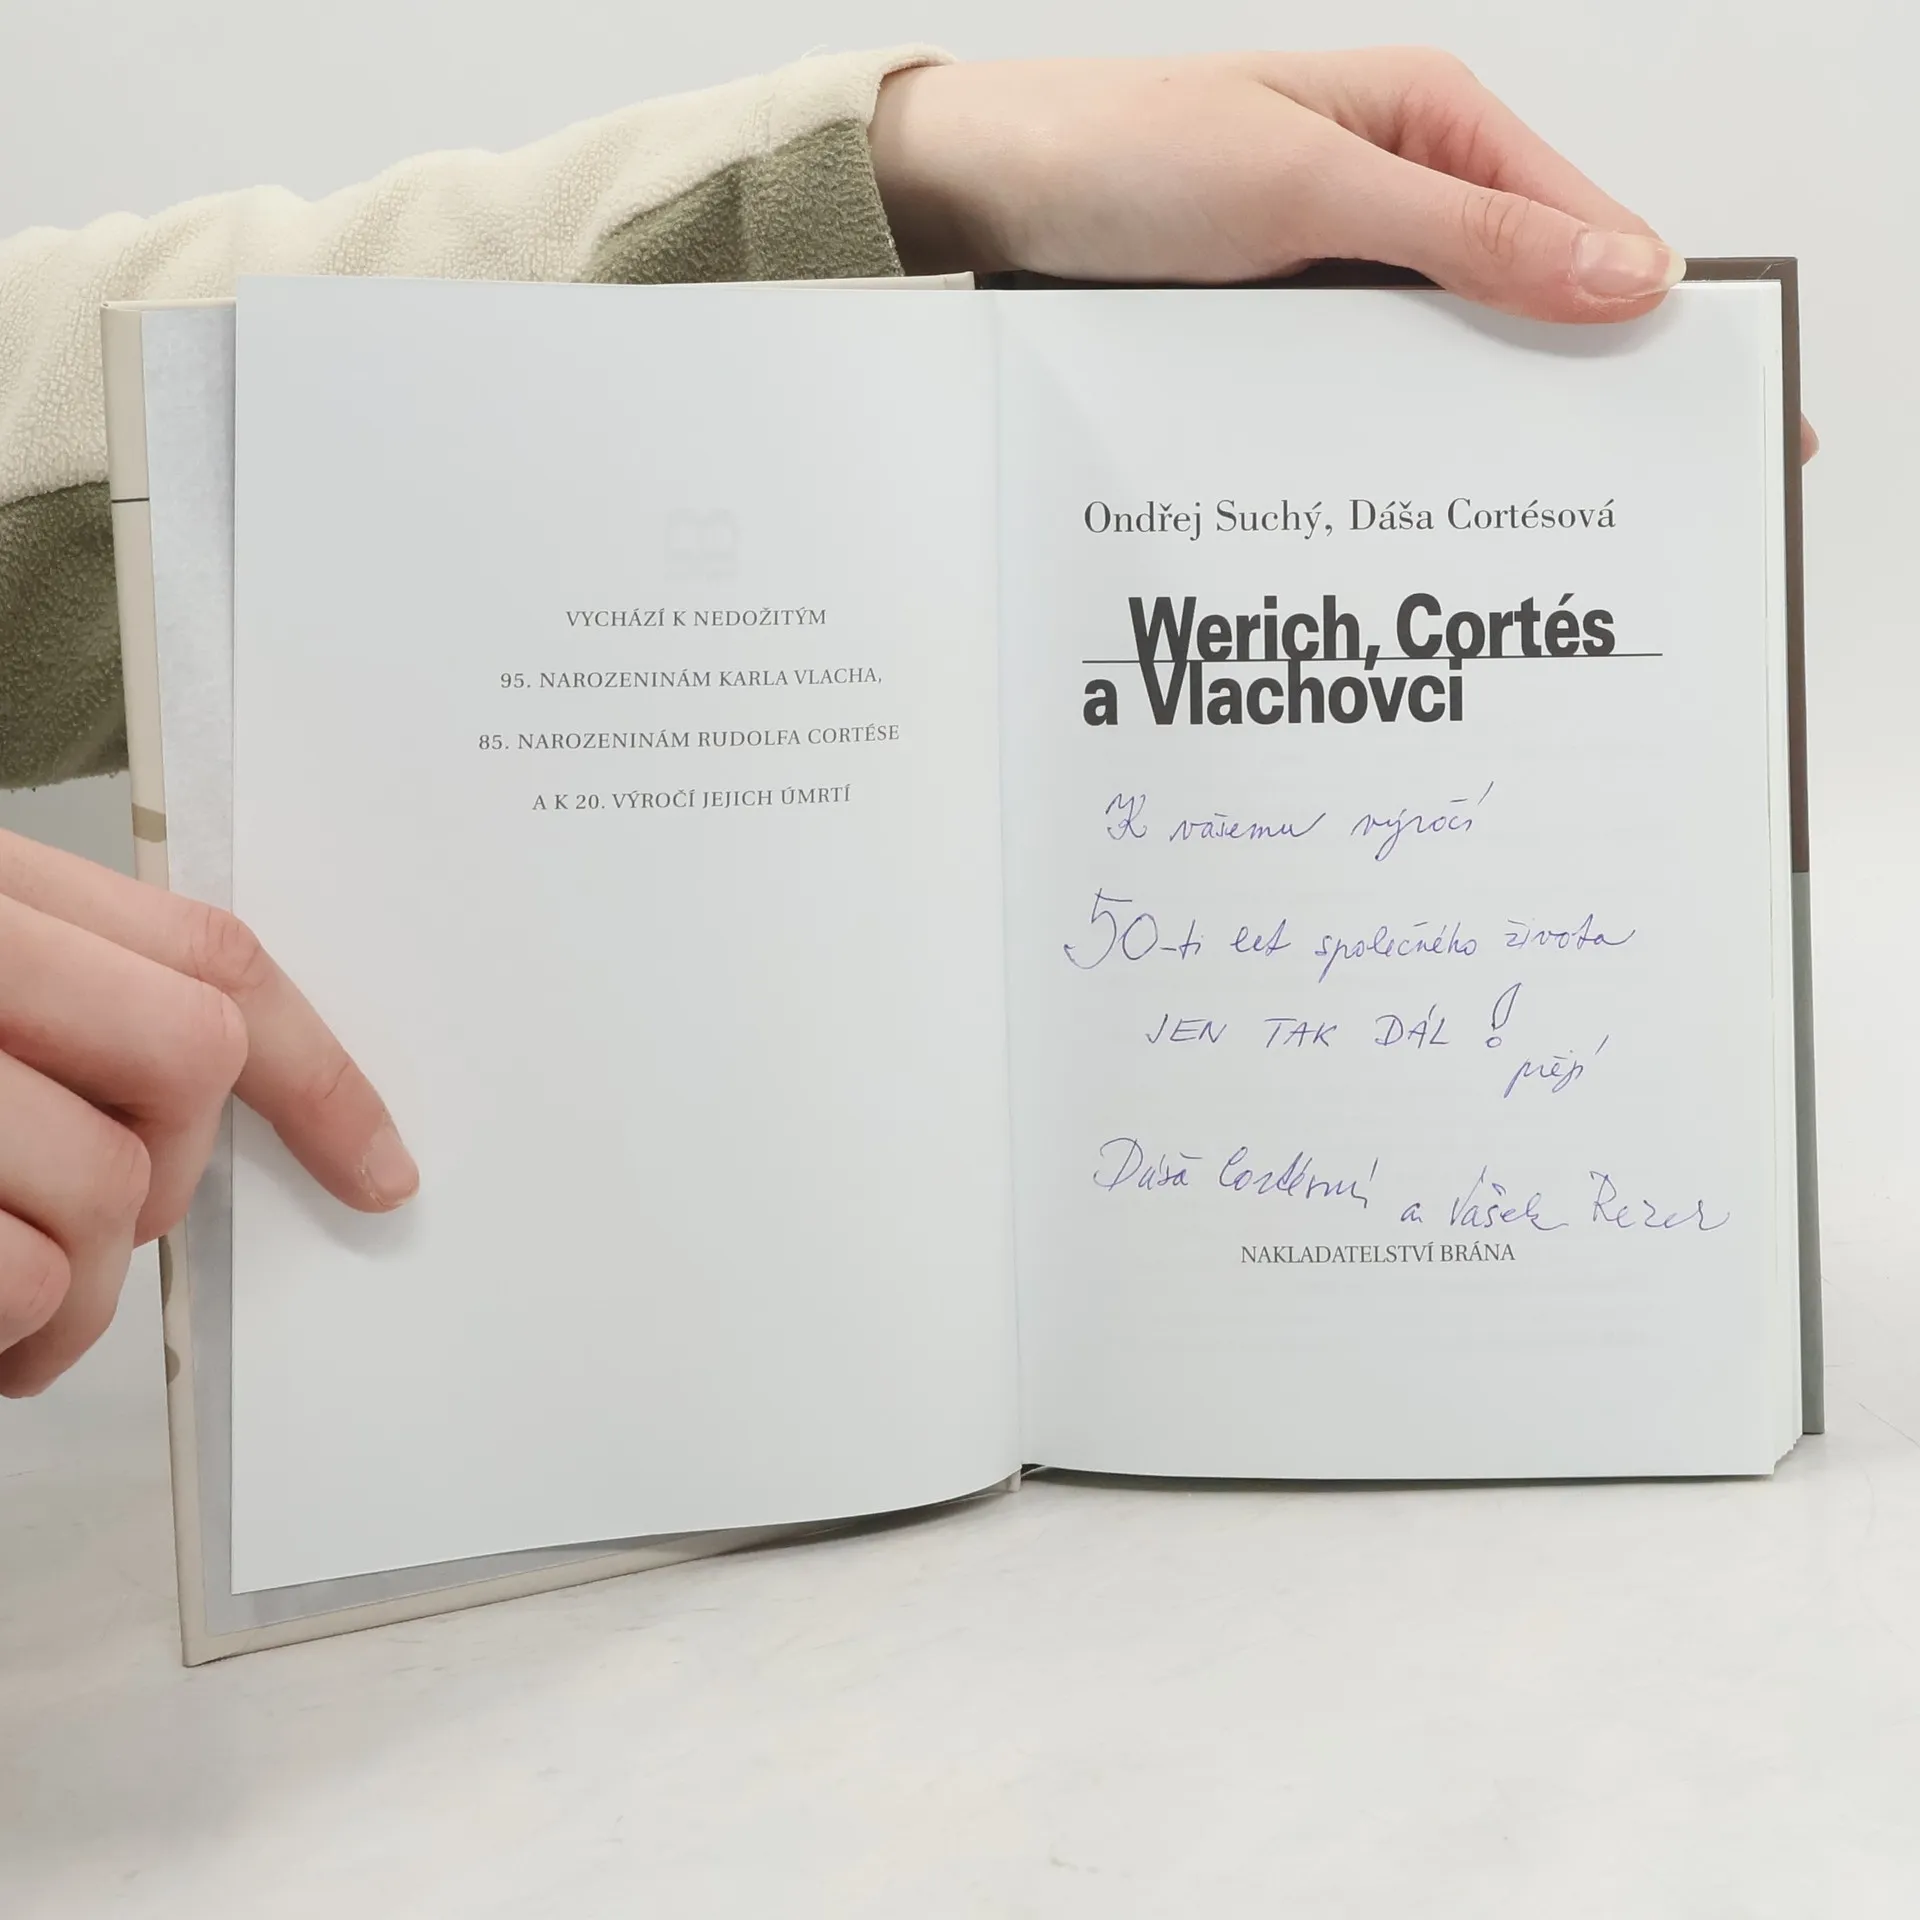 VYCHÁZÍ K NEDOŽITÝM
95. NAROZENINÁM KARLA VLACHA,
85. NAROZENINÁM RUDOLFA CORTÉSE
A K 20. VÝROČÍ JEJICH ÚMRTÍ
Ondřej Suchý, Dáša Cortésová
Werich, Cortés
a Vlachovci
K vašemu výročí
50-ti let společného života
JEN TAK DÁL!
přejí
Dáša Cortésová
a Vašek Rezer
NAKLADATELSTVÍ BRÁNA